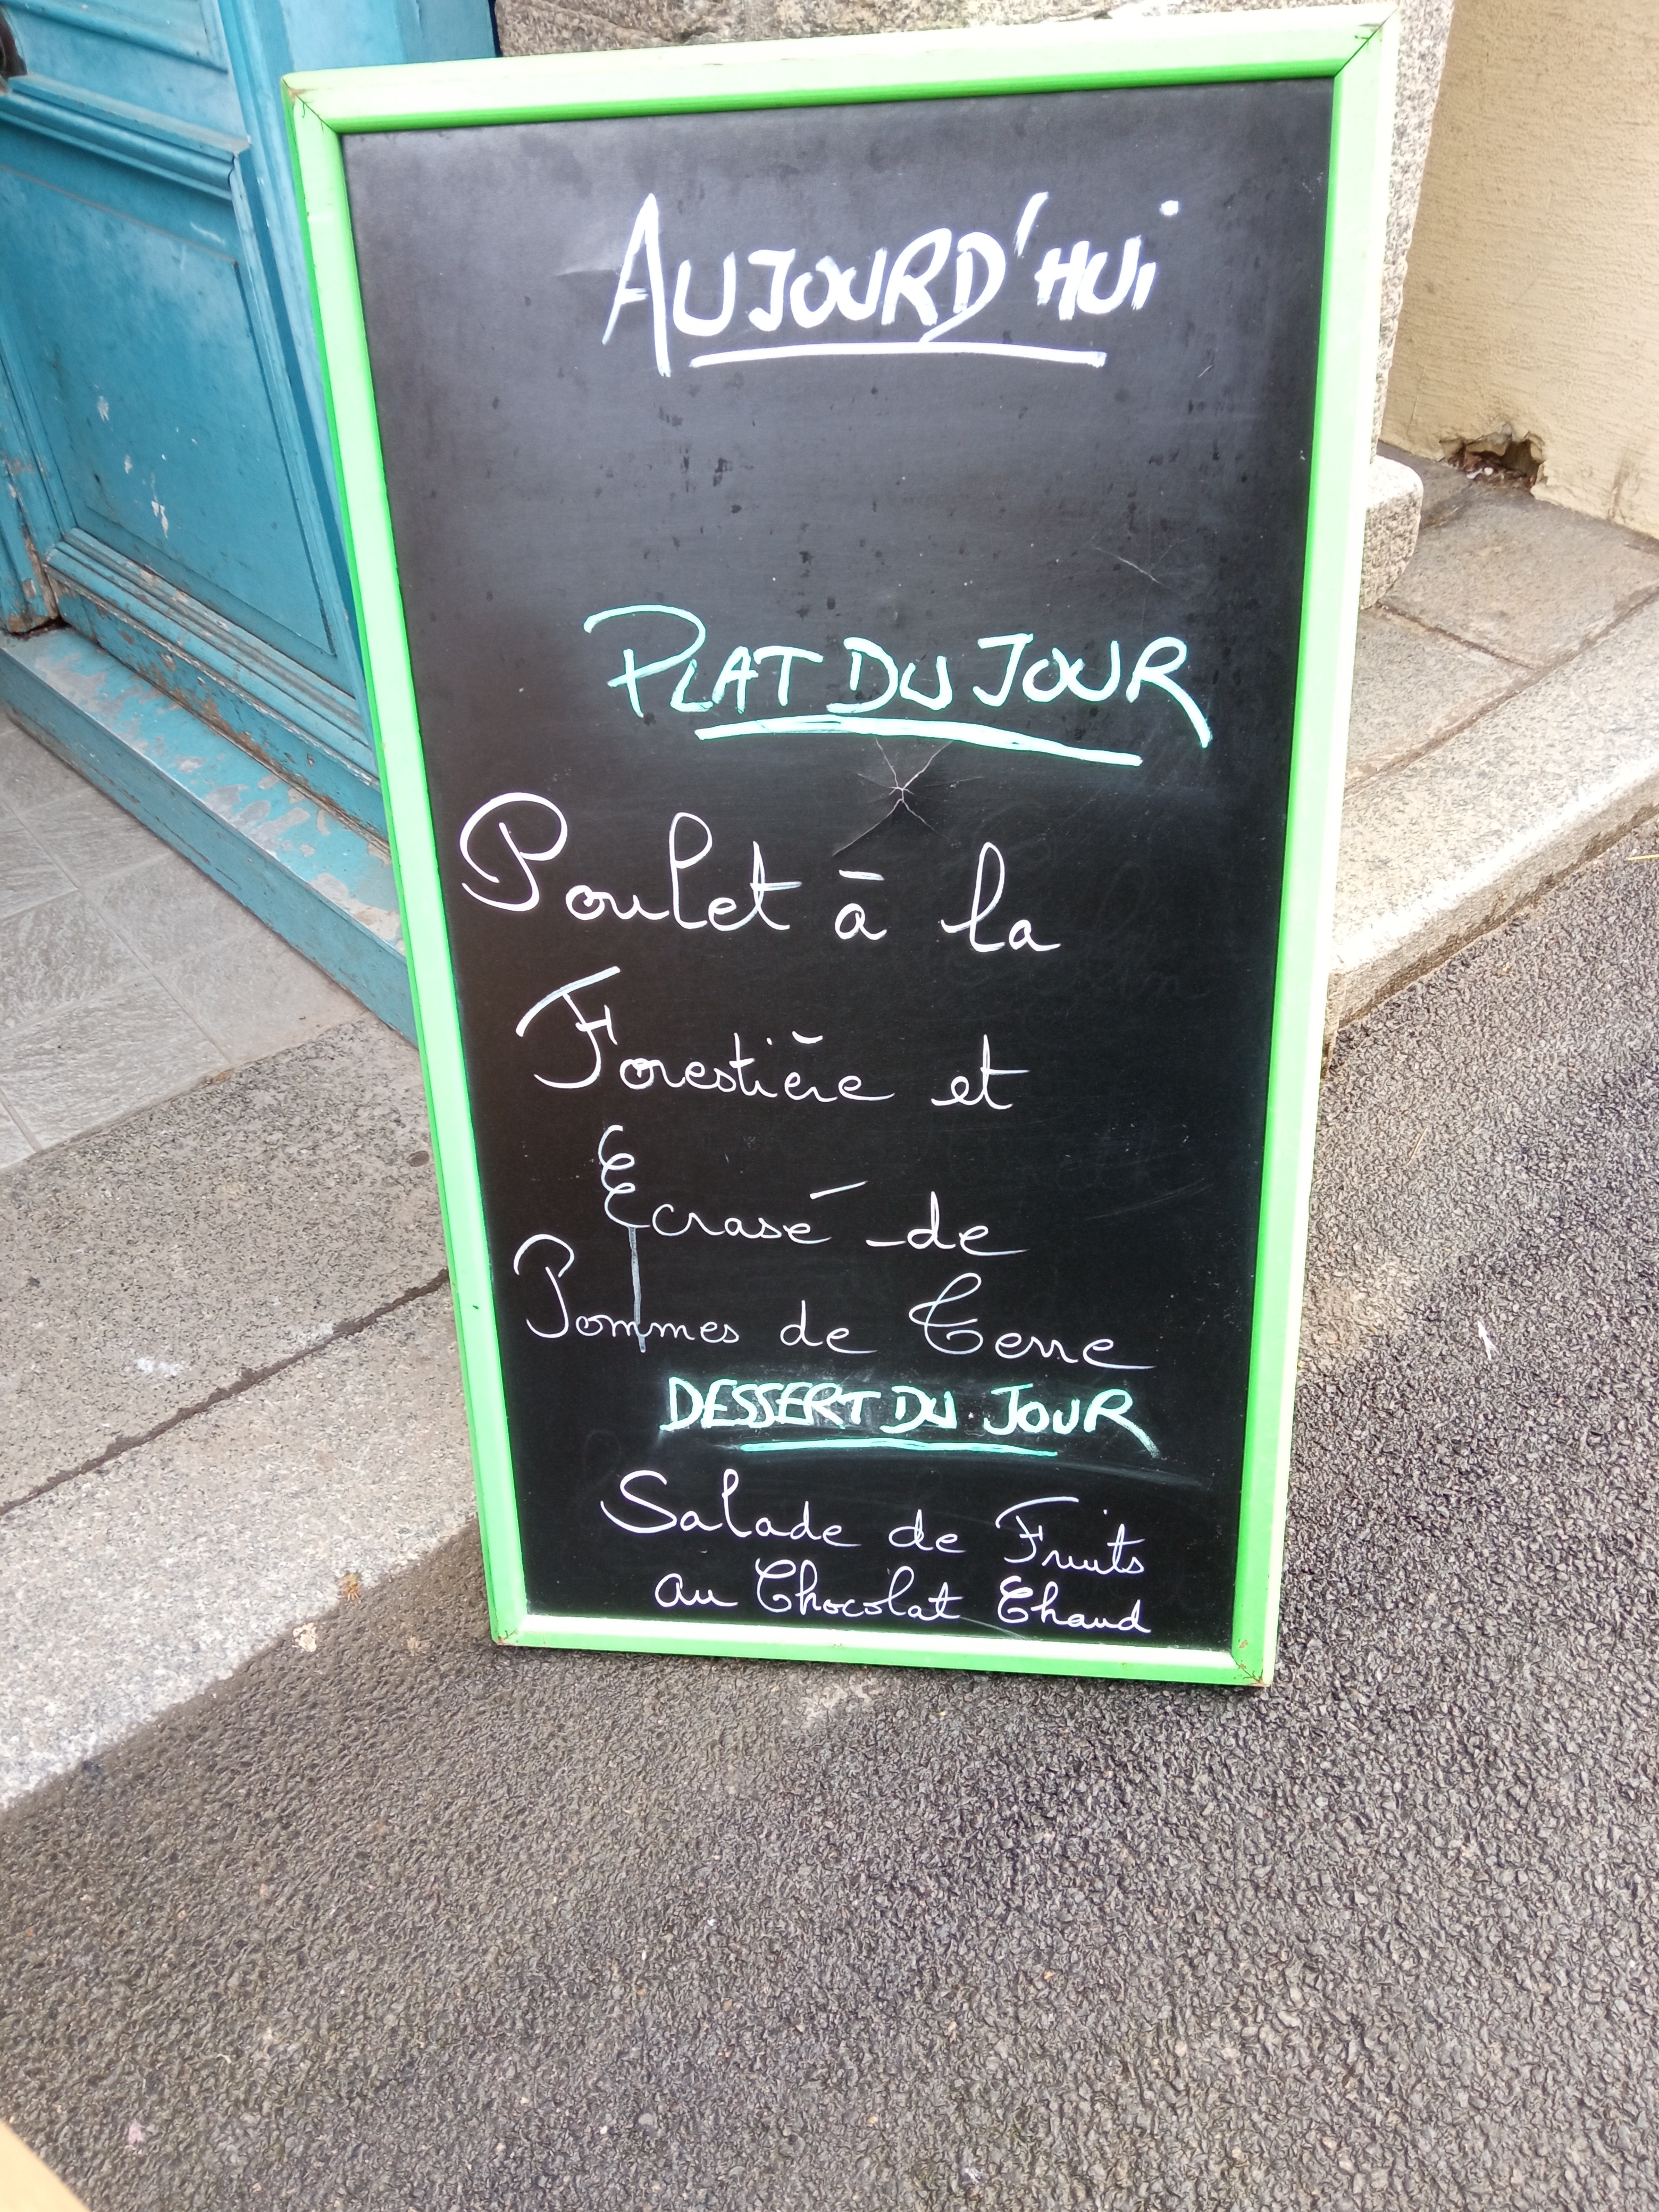 AUJOURD'HUi
PLAT DU JOUR
Poulet à la
Forestière et
Ecrasé de
Pommes de Terre
DESSERT DU JOUR
Salade de Fruits
au Chocolat Chaud